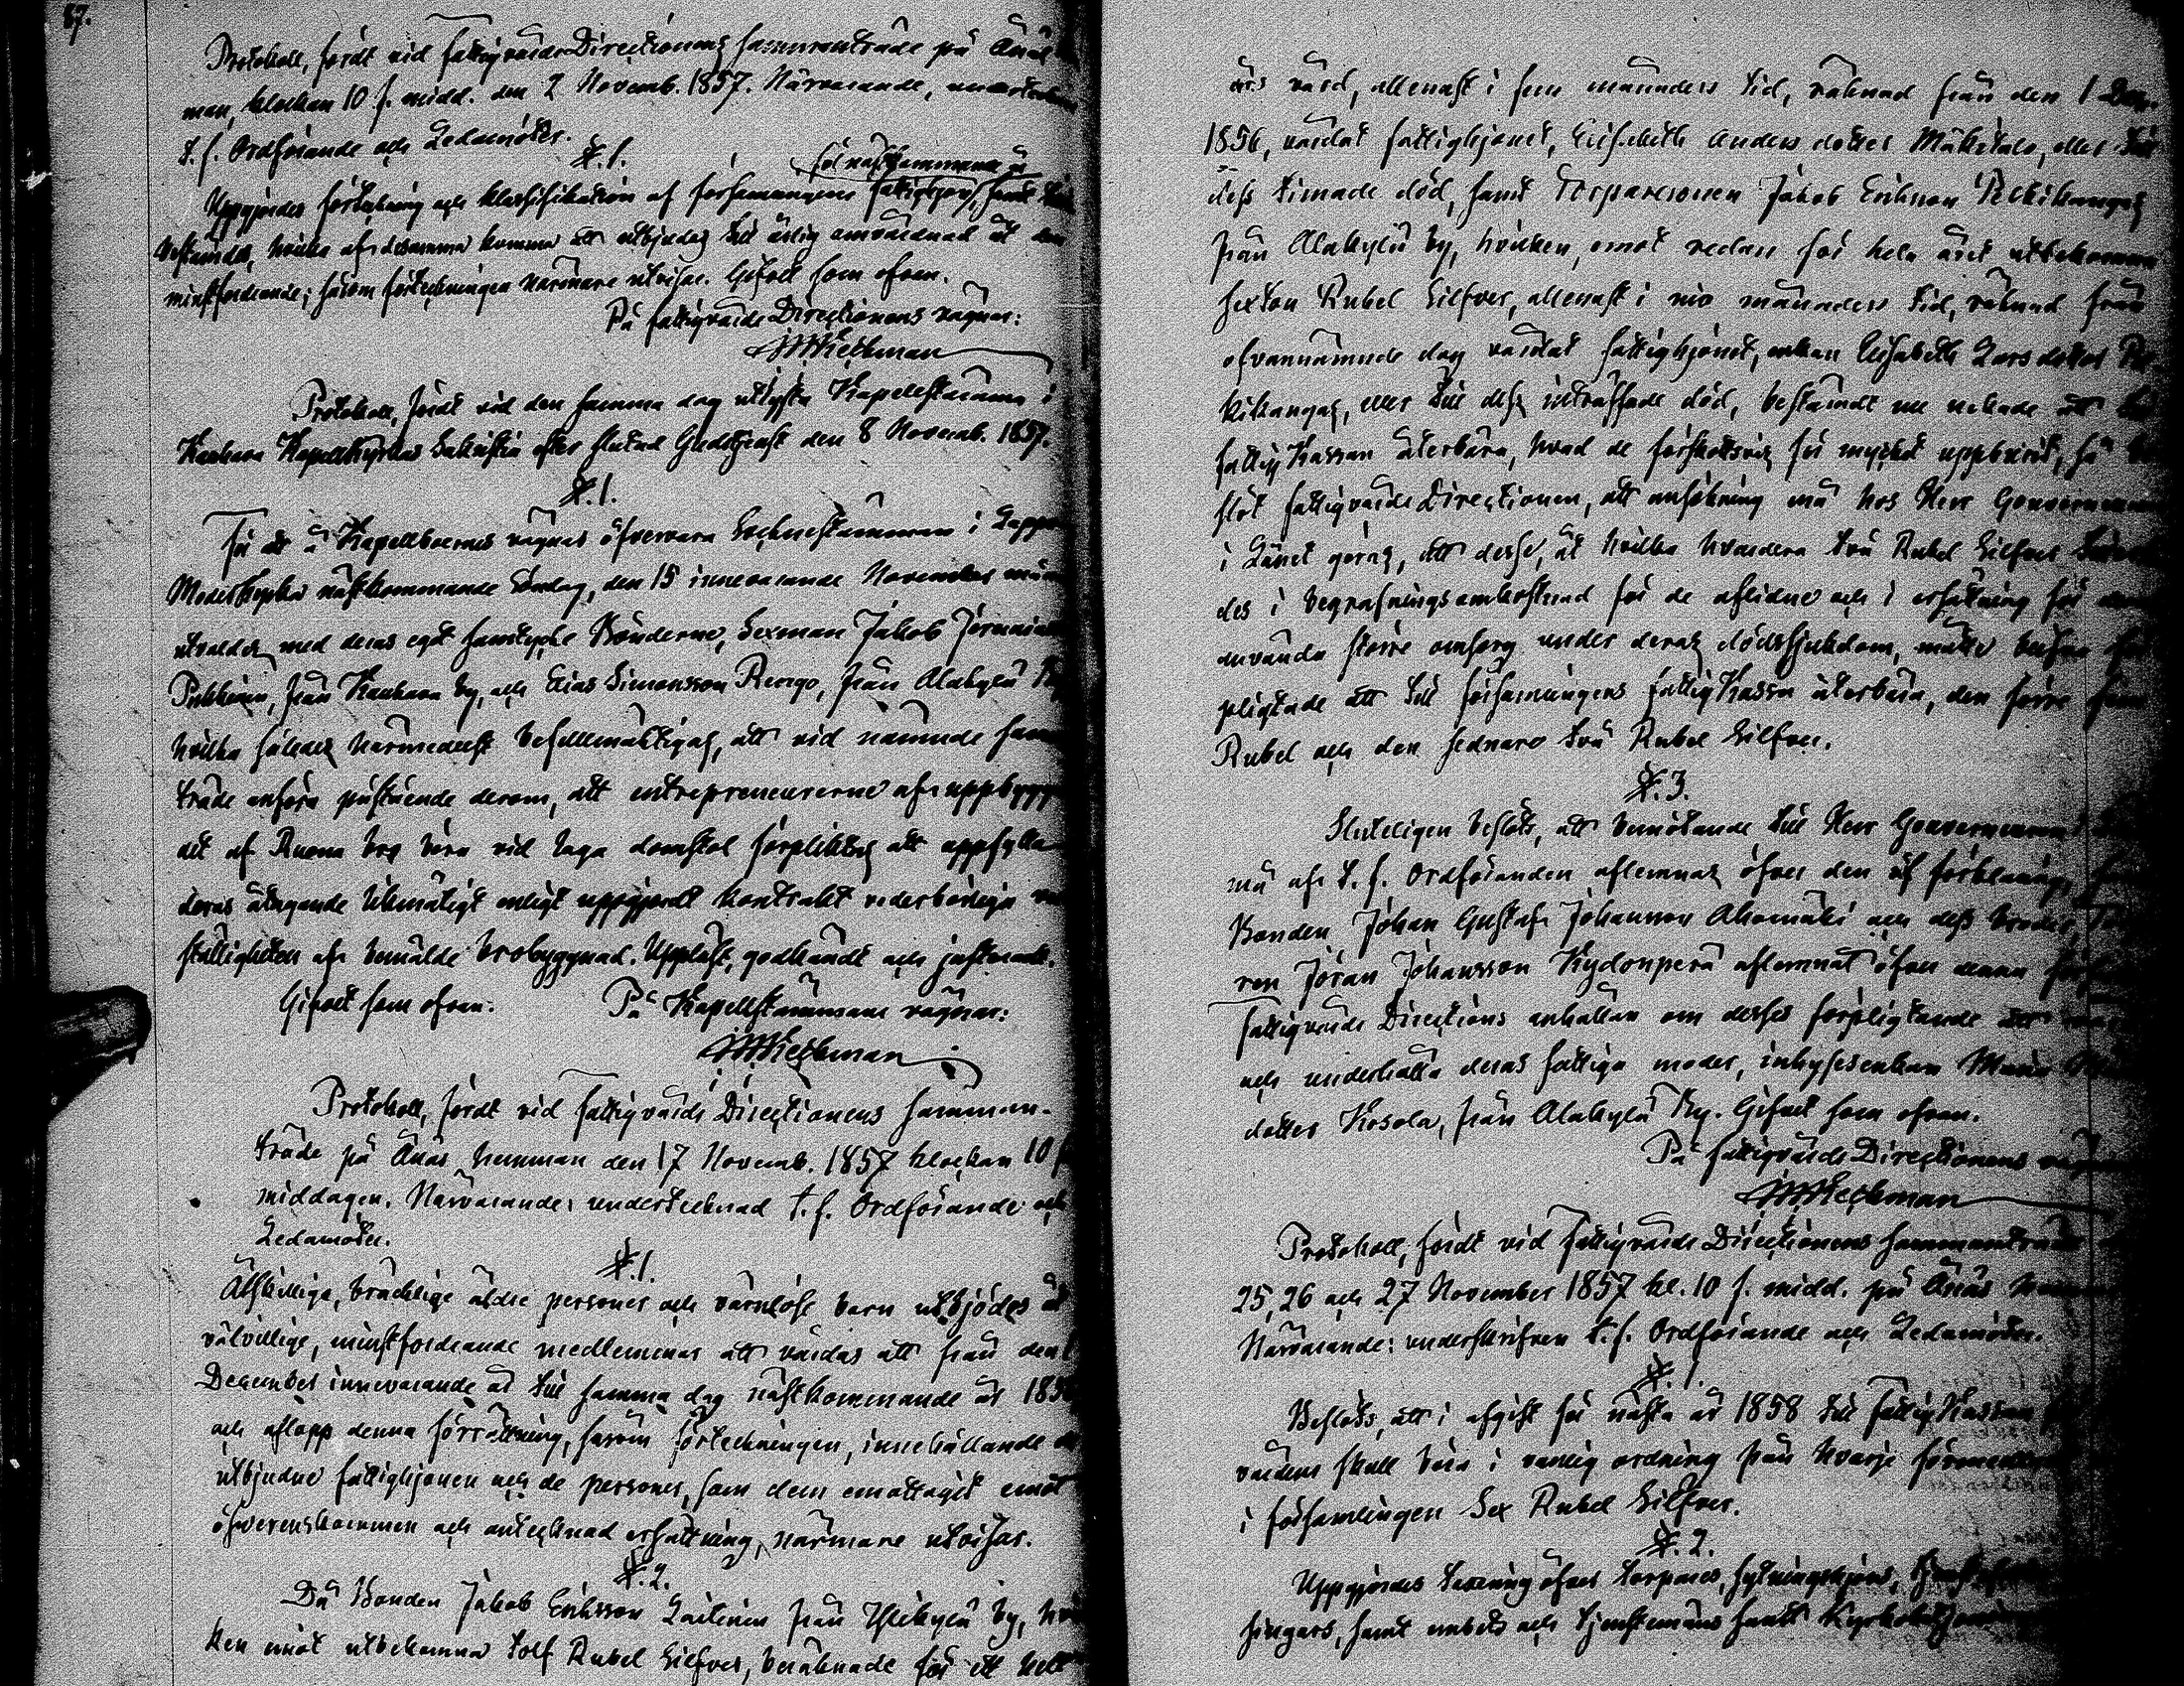 87.
Protokoll, fördt vid FattigvårdsDirectionens sammanträde på Ånäs
man, klockan 10 f. midd. den 2 Novemb. 1857. Närvarande,
t. f. Ordförande och Ledamöter.
§. 1.
Uppgjordes förteckning och klassifikation af församlingens
hvilka af desamma komma att utbjudas till årlig omvårdnad åt den
minstfordrande; såsom förteckningen närmare utvisar. Gifvet som ofvan.
På FattigvårdsDirectionens vägnar:
Protokoll, fördt vid den samma dag utlysta Kapellstämma i
Kauhava Kapellkyrkas Sakristia efter slutad Gudstjenst den 8 Novemb. 1857.
§. 1.
För att å Kapellboernes vägnar öfvervara Socknestämman i Lappo
Moderkyrka nästkommande Söndag, den 15 innevarande November
utvaldes med deras eget samtycke Bönderne, Sexman Jakob
från Kauhava by, och Elias Simonsson Rengo, från Alakylä
hvilka således härmedelst befullmäktigas, att vid nämnde
träde anföra påstående derom, att entrepreneurerne af
det af Ruona bro böra vid laga domstol förpliktas att uppfylla
deras åtagande likmätigt enligt uppgjordt kontrakt vederbörliga
ställigheten af bemälde brobyggnad. Uppläst, godkändt och justeradt.
Gifvet som ofvan. På Kapellstämmans vägnar:
Protokoll, fördt vid Fattigvårds Directionens samman-
träde på Ånäs hemman den 17 Novemb. 1857 klockan 10 f.
middagen. Närvarande: undertecknad t. f. Ordförande och
Ledamöter.
§. 1.
Åtskillige, bräcklige äldre personer och värnlöse barn utbjödos åt
välvillige, minstfordrande medlemmar att vårdas allt från den 1
December innevarande år till samma dag nästkommande år
och aflopp denna förrättning, såsom förteckningen, innehållande
utbjudne fattighjonen och de personer, som dem emottagit emot
öfverenskommen och antecknad ersättning, närmare utvisar.
§. 2.
Då Bonden Jakob Eriksson från Ylikylä by,
ken emot utbekomna tolf Rubel Silfver, beräknade för ett helt
års vård, allenast i fem månaders tid, räknad från den 1 Dec.
1856, vårdat fattighjonet, Elisabeth Andersdotter Mäkitalo, eller till
dess timade död, samt Torparesonen Jakob Eriksson
från Alakylä by, hvilken, emot redan för hela året utbekomna
sexton Rubel Silfver, allenast i nio månaders tid, räknad från
ofvannämnde dag vårdat fattighjonet, enkan Elisabeth Larsdotter
kikangas, eller till dess inträffade död, bestämdt nekade att till
fattigKassan återbära, hvad de förskottsvis för mycket uppburit; så
slöt FattigvårdsDirectionen, att ansökning må hos Herr Gouverneuren
i Länet göras, att desse, åt hvilka hvardera två Rubel Silfver
des i begrafningsomkostnad för de aflidne och i ersättning för
använda större omsorg under deras dödssjukdom, måtte
pligtade att till församlingens fattigKassa återbära, den förre
Rubel och den sednare två Rubel Silfver.
§. 3.
Sluteligen beslöts, att bemötande till Herr Gouverneuren
må af t. f. Ordföranden aflemnas öfver den förklaring,
Bonden Johan Gustaf Johansson Ahomäki och dess broder,
ren Jöran Johansson Kydönperä aflemnat öfver denna
Fattigvårds Directions anhållan om desses förpligtande att
och underhålla deras fattiga moder, inhysesenkan Maria
dotter Kosola, från Alakylä by. Gifvet som ofvan.
På FattigvårdsDirectionens
Protokoll, fördt vid FattigvårdsDirectionens sammanträde
25, 26 och 27 November 1857 kl. 10 f. midd. på Ånäs
Närvarande: underskrifven t. f. Ordförande och Ledamöter.
§. 1.
Beslöts, att i afgift för nästa år 1858 till fattigKassan
vården skall böra i vanlig ordning från hvarje
i församlingen Sex Rubel Silfver.
§. 2.
Uppgjordes taxering öfver torpares,
samt embets och tjenstemäns samt